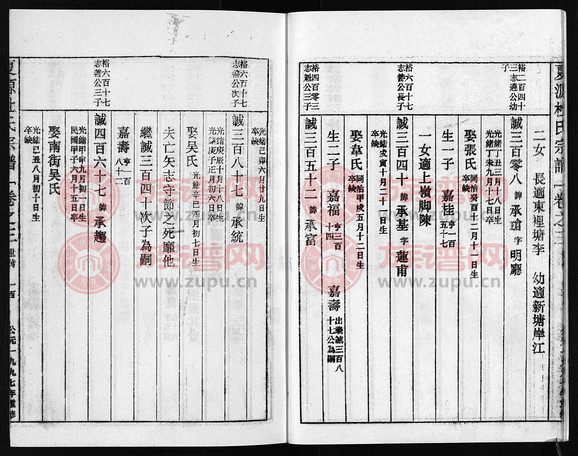 夏源杜氏宗譜 卷之三
二女 長適東裡塘李 幼適新塘岸江
裕二百零四
三志遇公幼
子
誠三百零八 諱承瑄 字明廳
光緒丁未九月十六日卒
娶張氏
生一子 嘉桂 亨二
五十七
一女適上嶺脚陳
裕六百十七
志善公長子
誠三百四十 諱承基 字蓮甫
光緒戊寅十月二十一日生
卒缺
娶韋氏 同治甲戌五月十二日生
卒缺
生二子 嘉福 亨三
十四 嘉壽 出繼誠三百八
十七公為嗣
裕四百零三
志魁公三子
誠三百五十二 諱承富
光緒己卯六月廿九日生
卒缺
裕六百十七
志善公次子
誠三百八十七 諱承統
光緒庚辰六月初八日生
娶吳氏 光緒辛巳四月初七日生
未亡矢志守節之死靡他
繼誠三百四十次子為嗣
嘉壽 亨二百
八十二
裕六百十七
志善公三子
誠四百六十七 諱承趣
光緒甲申九月初一日生
民國甲申九月十五日卒
娶南街吳氏
光緒己丑八月初十日生
卒缺
夏源杜氏宗譜 卷之三
一百
公元一九九七年重修
族譜网
www.zupu.cn